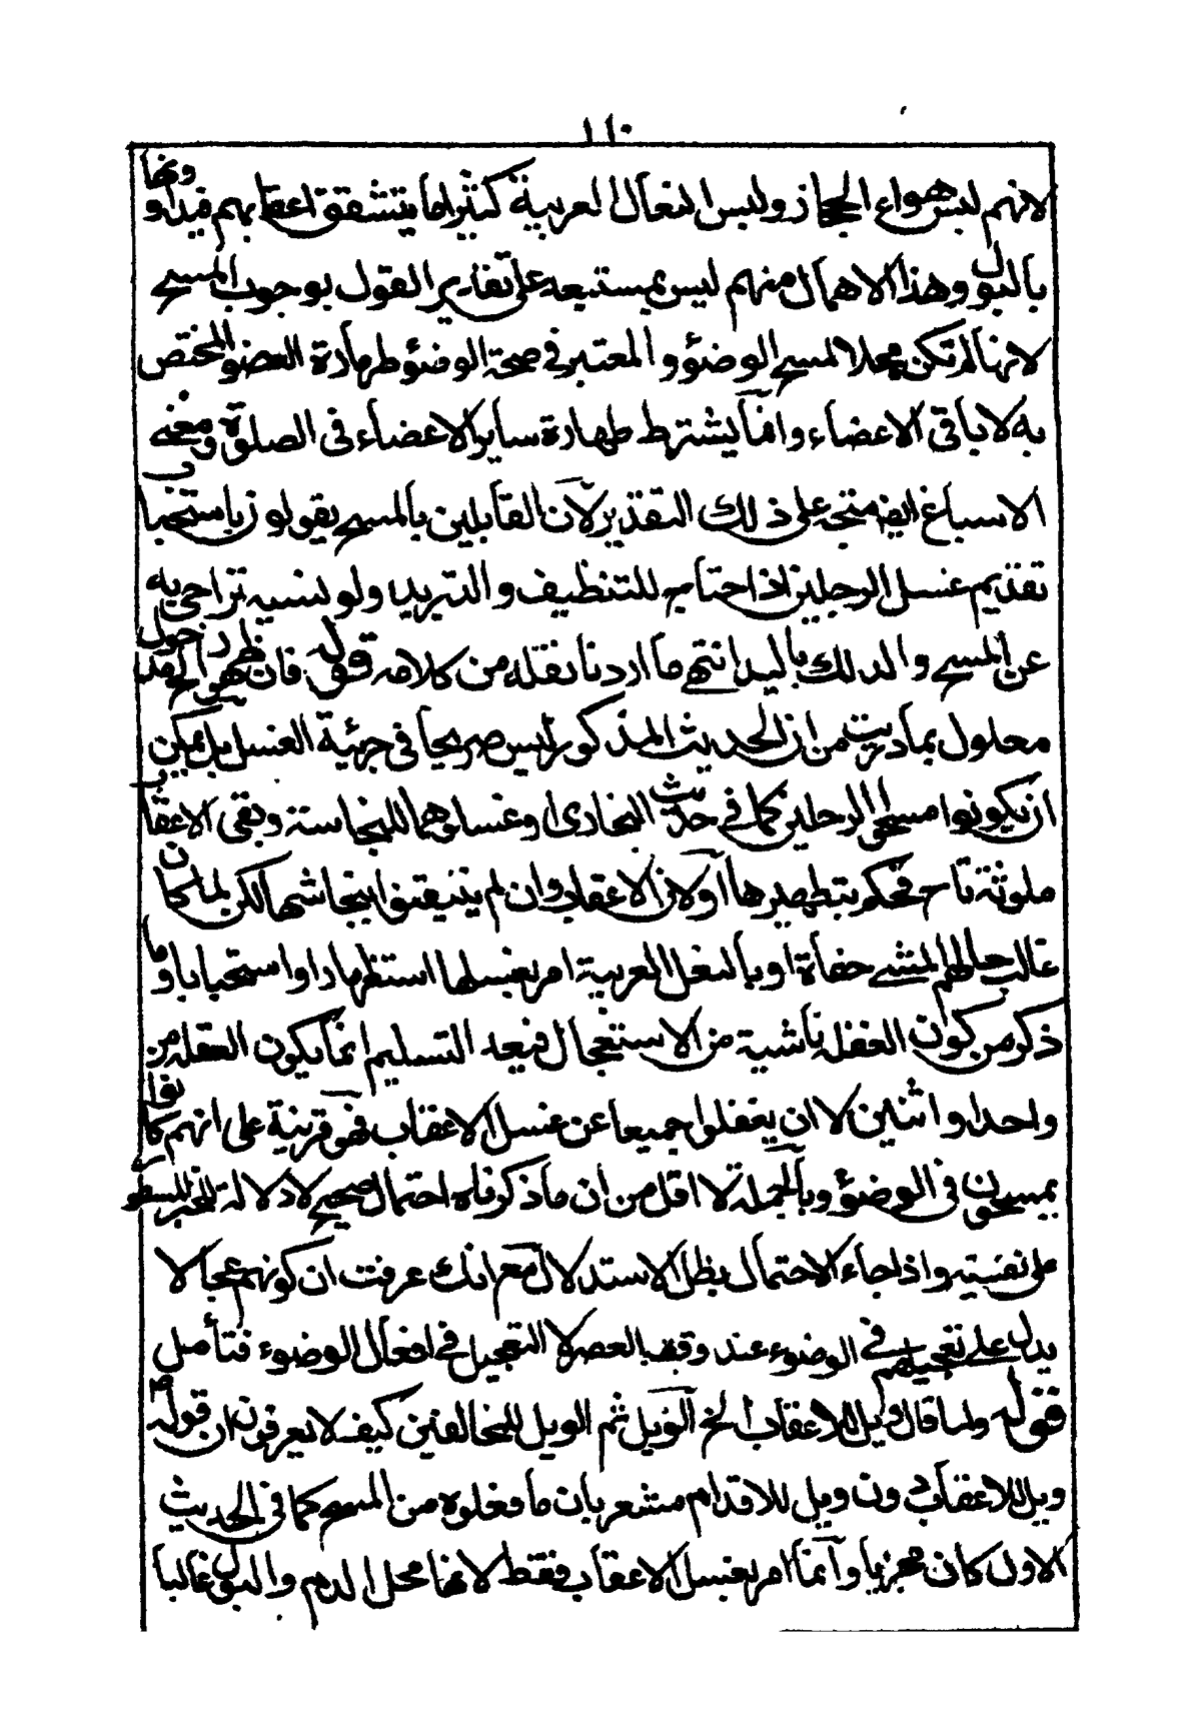 ١١٠
لانهم ليس هواء الحجاز وليس النعال العربية كثيرا ما يتشقق اعقابهم فيداوونها
بالبول وهذا الاهمال منهم ليس بمستبعد على تقدير القول بوجوب المسح
لانها لم تكن محلا لمسح الوضوء والمعتبر في صحة الوضوء طهارة العضو المختص
به لا باقي الاعضاء وانما يشترط طهارة ساير الاعضاء في الصلوة ومعنى
الاسباغ ايضا متجه على ذلك التقدير لان القايلين بالمسح يقولون باستحباب
تقديم غسل الرجلين اذا احتاج للتنظيف والتبريد ولو لنسيه تراخى به
عن المسح والدلك باليد انتهى ما اردنا نقله من كلامه فقوله فان ظهر الحديث
محلول بما دريت من ان الحديث المذكور ليس صريحا في جزئية الغسل بل يمكن
ان يكونوا مسحوا الرجلين كما في حديث البخارى او غسلوهما للنجاسة وبقى الاعقاب
ملوثة فحكم بتطهيرها او لان الاعقاب وان لم يتيقنوا بنجاستها لكن لما كان
غالب حالهم المشى حفاة او بالنعل العربية امر بغسلها استظهارا او استحبابا وما
ذكر من كون الغفلة ناشية من الاستعجال فبعد التسليم انما يكون الغفلة من
واحد او اثنين لا ان يغفلوا جميعا عن غسل الاعقاب فهو قرينة على انهم كانوا
يمسحون في الوضوء وبالجملة لا اقل من ان ما ذكرناه احتمال صحيح لا دلالة للخبر المسطور
على نفيه واذا جاء الاحتمال بطل الاستدلال مع انك عرفت ان كونهم عجالا
يدل على تعجيلهم في الوضوء عند وقت العصر لا التعجيل في افعال الوضوء فتأمل
فقوله ولما قال ويل للاعقاب الخ الويل ثم الويل للمخالفين كيف لا يعرفون ان قوله
ويل للاعقاب دون ويل للاقدام مشعر بان ما فعلوه من المسح كما في الحديث
الاول كان مجزيا وانما امر بغسل الاعقاب فقط لانها محل الدم والبول غالبا